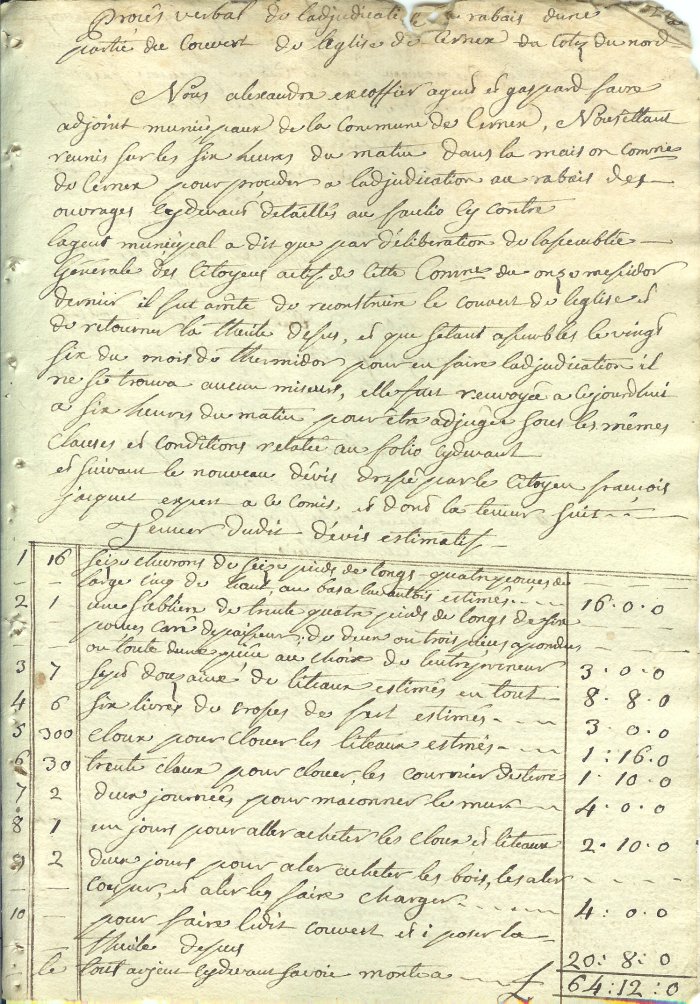 Procês verbal de ladjudication a rabais dune
partie du Couvert de leglise de Cernex du Coté du nord
Nous alexandre excoffier agent et gaspard favre
adjoint municipaux de la Commune de Cernex, Nous êttant
reunis sur les six heures du matin dans la maison comne
de Cernex pour proceder a ladjudication au rabais des
ouvrages cydevant detaillés au faulio cy contre
lagent municipal a dit que par déliberation de lassemblée
Générale des Citoyens actifs de Cette Comne du onze messidor
dernier il fut arreté de reconstruire le couvert de leglise et
de retourner la thuile desus, et que setant assemblés le vingt
six du mois de thermidor pour en faire ladjudication il
ne se trouva aucun miseurs, elle fut renvoyée a cejourdhui
a six heures du matin pour être adjugée sous les mêmes
Clauses et Conditions relatée au folio cydevant
et suivant le nouveau dévis dressé par le Citoyen francois
jacquet expert a ce comis, et dont la teneur suit
Teneur dudit dévis estimatif
1 16 seize chevrons de seize pieds de longs quatre pouces de
large cinq de haut, au bas a luy autois estimés 16.0.0
2 1 une sablière de trente quatre pieds de longs de six
pouces carré depaisseur: de deux ou trois pièces apondues
ou toute dune pièce au choix de lentrepreneur 3.0.0
3 7 sept douzaine de liteaux estimés en tout 8.8.0
4 6 six livres de de fert estimés 3.0.0
5 300 cloux pour clouer les liteaux estimés 1:16.0
6 30 trente cloux pour clouer les cournier de livre 1.10.0
7 2 deux journées pour maconner le mur 4.0.0
8 1 un jours pour aller acheter les cloux et liteaux 2.10.0
9 2 deux jours pour aler acheter les bois, les aler
couper, et aler les faire charger 4:0.0
10 pour faire ledit couvert et i poser la
thuile desus 20:8:0
le tout argent cydevant savoie monte a £ 64:12:0